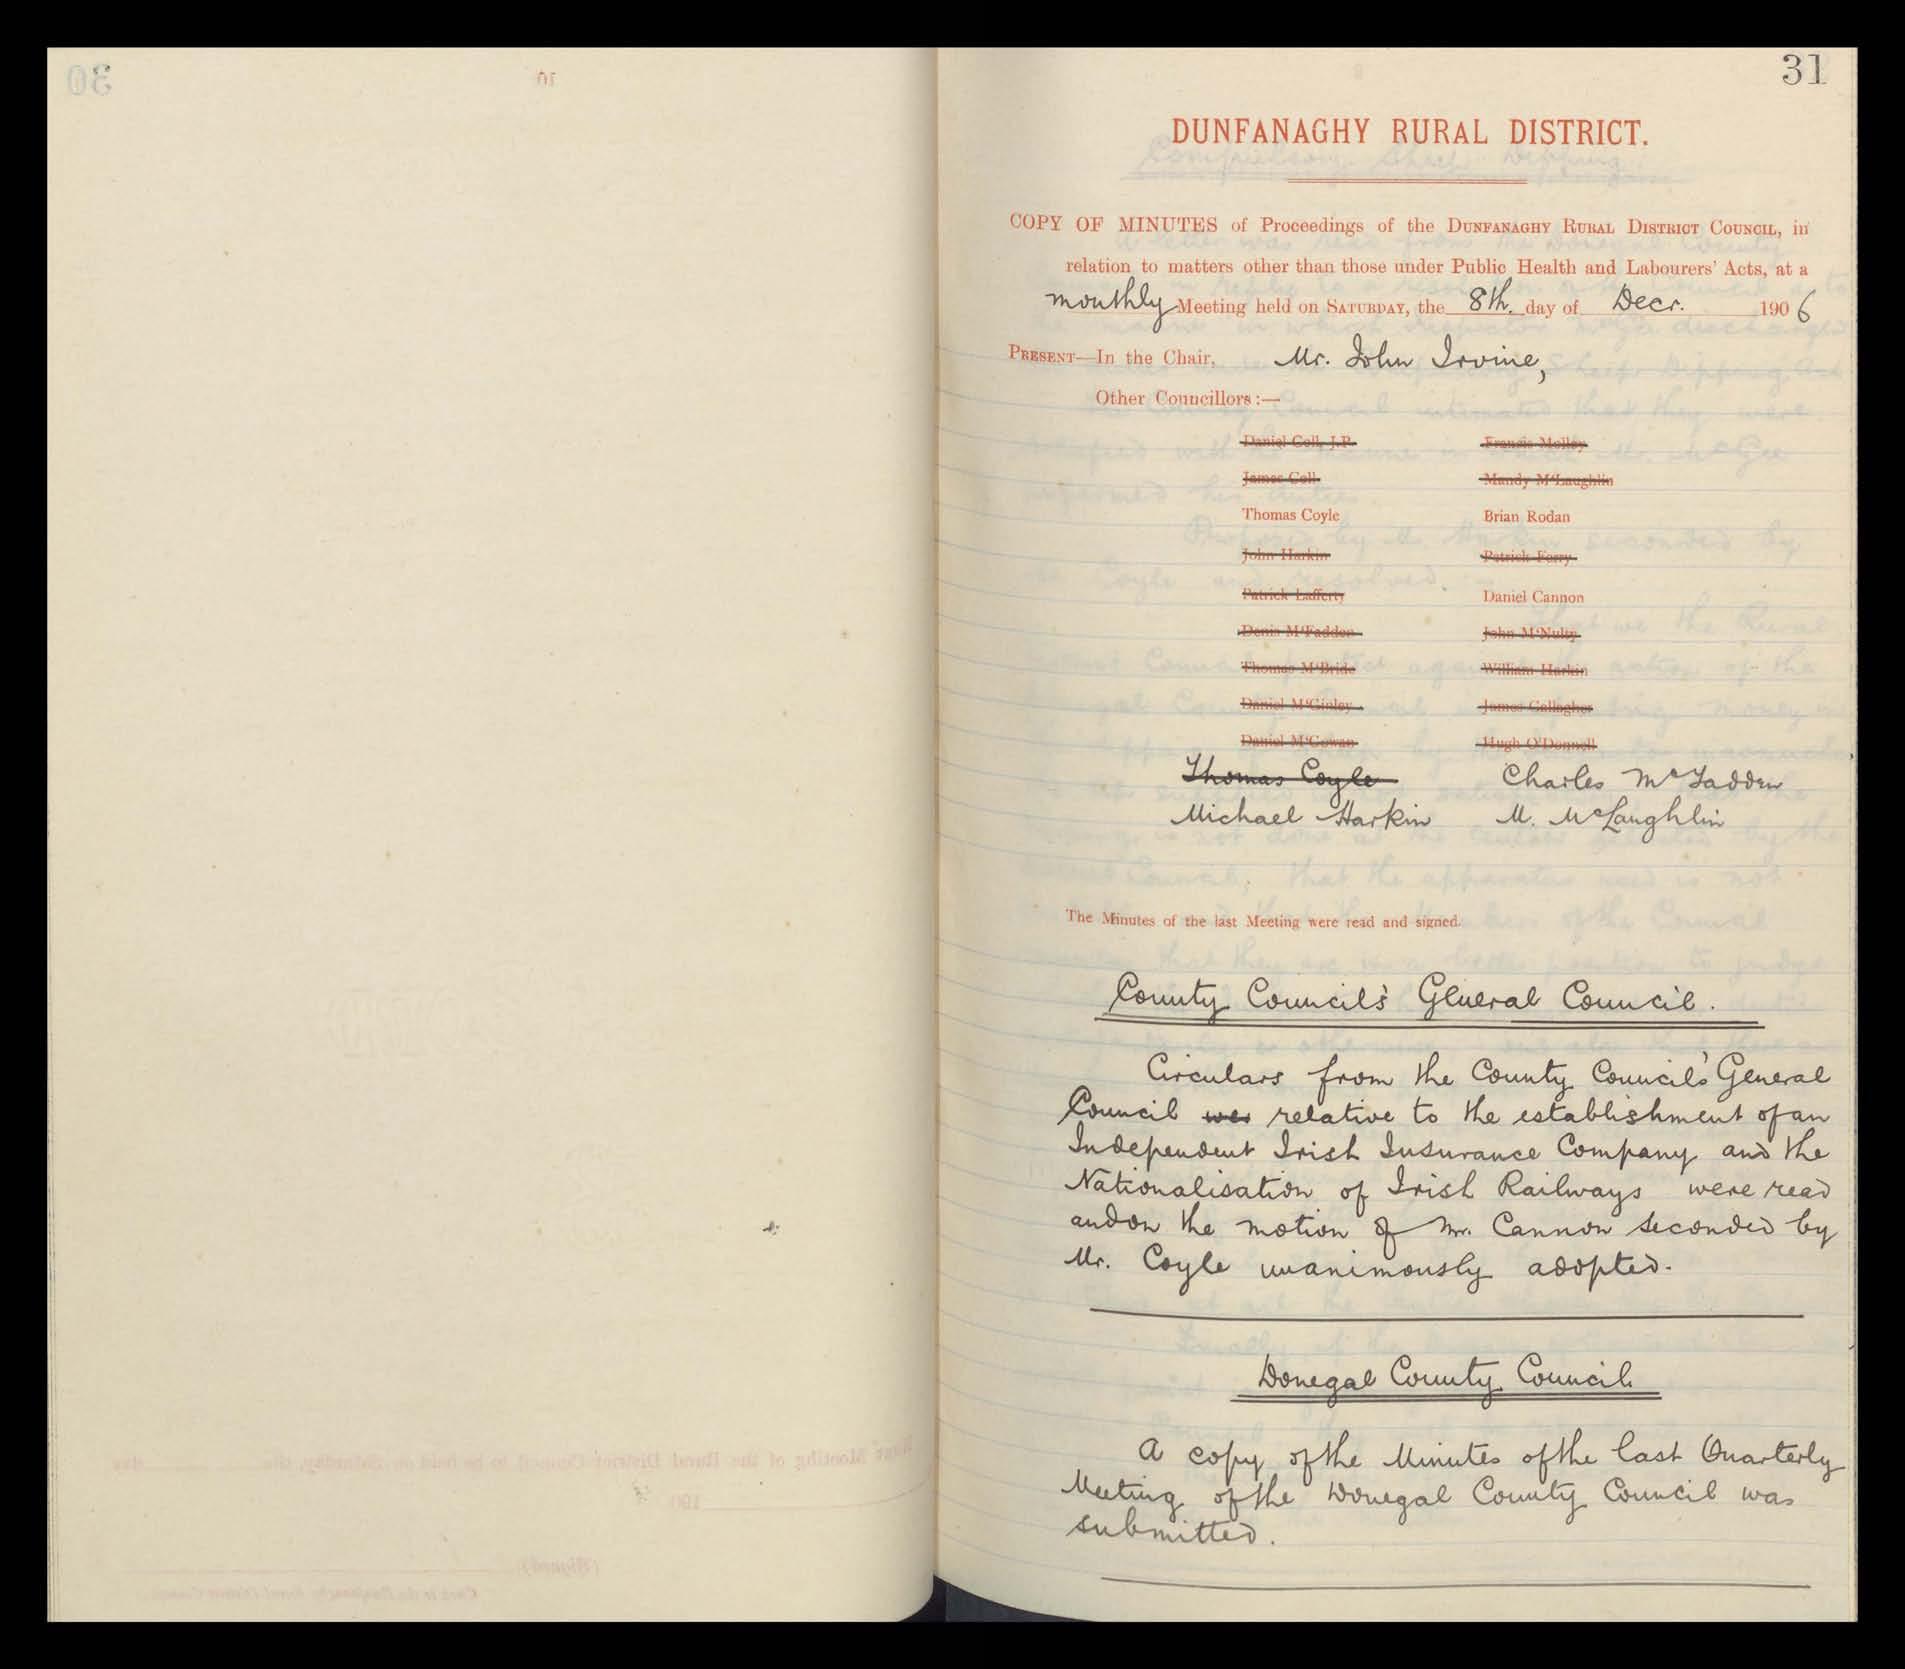 31
DUNFANAGHY RURAL DISTRICT.
COPY OF MINUTES of Proceedings of the DUNFANAGHY RURAL DISTRICT COUNCIL, in
relation to matters other than those under Public Health and Labourers' Acts, at a
monthly Meeting held on SATURDAY, the 8th. day of Decr. 1906
PRESENT—In the Chair, Mr. John Irvine,
Other Councillors :—
Daniel Coll, J.P. Francis Molloy
James Coll Mandy McLaughlin
Thomas Coyle Brian Rodan
John Harkin Patrick Ferry
Patrick Lafferty Daniel Cannon
Denis McFadden John McNulty
Thomas McBride William Harkin
Daniel McGinley James Gallagher
Daniel McGowan Hugh O'Donnell
Thomas Coyle Charles McFadden
Michael Harkin M. McLaughlin
The Minutes of the last Meeting were read and signed.
County Council's General Council.
Circulars from the County Council's General
Council wer relative to the establishment of an
Independent Irish Insurance Company and the
Nationalisation of Irish Railways were read
and on the motion of Mr. Cannon seconded by
Mr. Coyle unanimously adopted.
Donegal County Council.
A copy of the Minutes of the last Quarterly
Meeting of the Donegal County Council was
submitted.